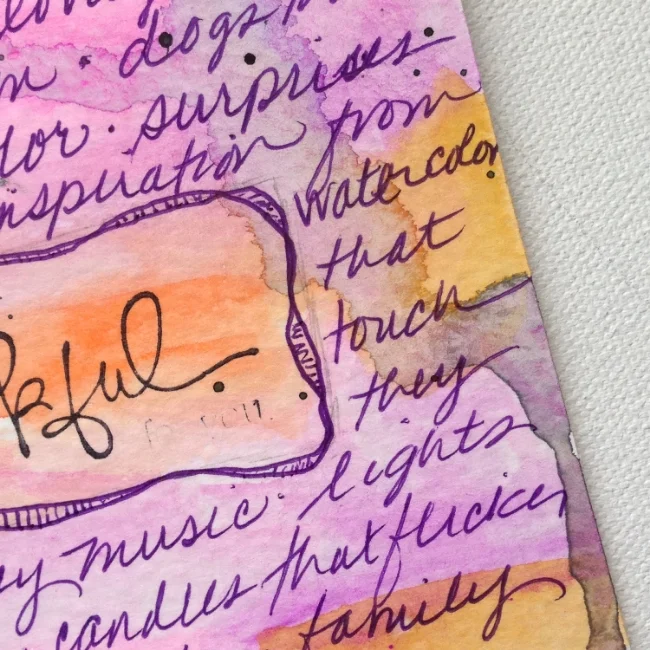 m · dogs
lor · surprises
nspiration from
watercolor
that
touch
they
kful
lights
y music ·
candles that flicker
family